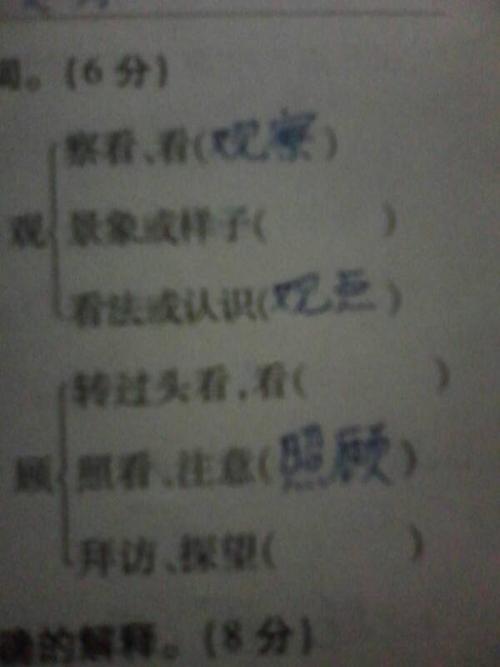 词。(6分)
观
察看、看(观察)
景象或样子( )
看法或认识(观点)
顾
转过头看,看( )
照看、注意(照顾)
拜访、探望( )
确的解释。(8分)